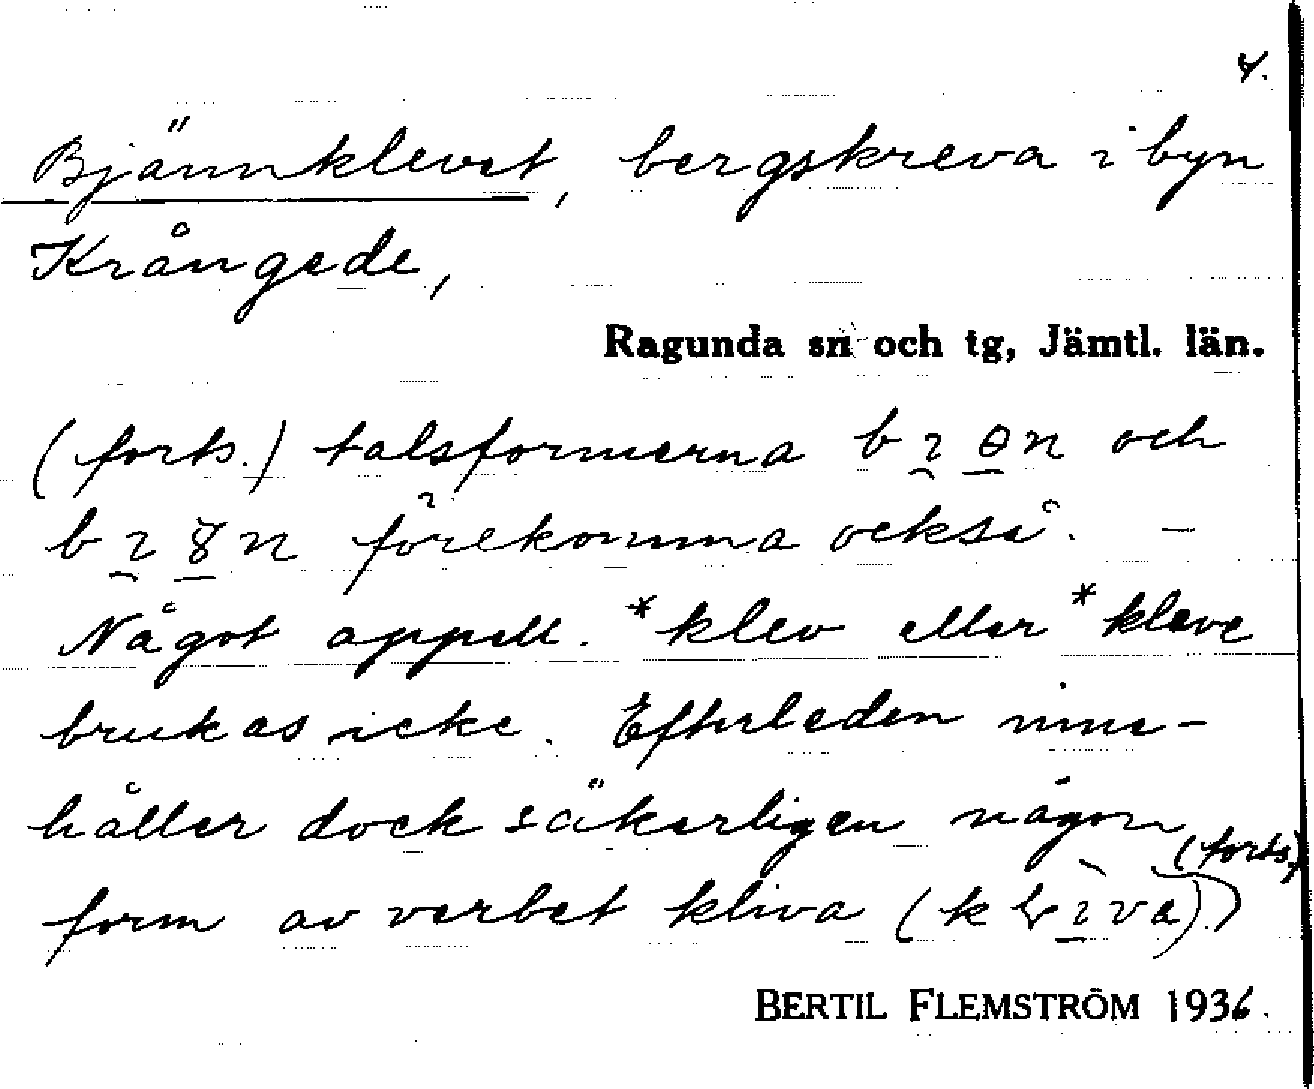 4.
Bjännklevet, bergskreva i byn
Krångede,
Ragunda sn och tg, Jämtl. län.
(forts.) talsformerna b ɿ ɵ n och
b ɿ 8 n förekomma också. –
Något appell. *klev eller *kleve
brukas icke. Efterleden inne-
håller dock säkerligen någon
(forts.)
form av verbet kliva
BERTIL FLEMSTRÖM 1936.